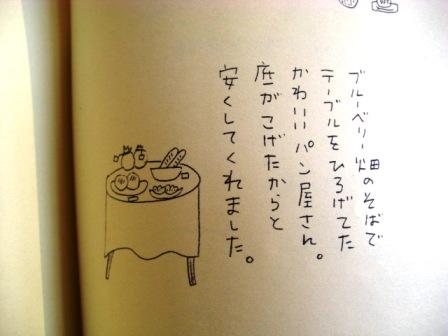 ブルーベリー畑のそばで
テーブルをひろげてた
かわいいパン屋さん。
底がこげたからと
安くしてくれました。